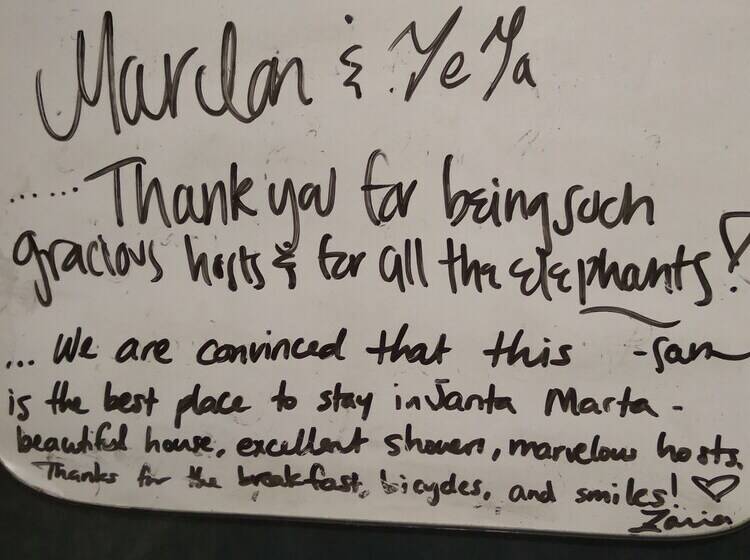 Marlon & YeYa
...... Thank you for being such
gracious hosts & for all the elephants!
... We are convinced that this - Sam
is the best place to stay in Santa Marta -
beautiful house, excellent showers, marvelous hosts.
Thanks for the breakfast, bicycles, and smiles! ♡
Zaria